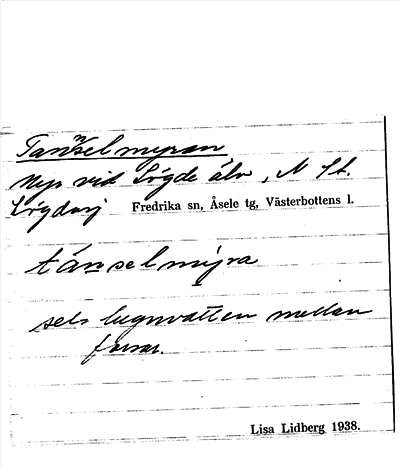 Tannselmyran
Myr vid Lögde älv, N St.
Lögdasj Fredrika sn, Åsele tg, Västerbottens l.
tánselmýra
sel: lugnvatten mellan
forsar.
Lisa Lidberg 1938.